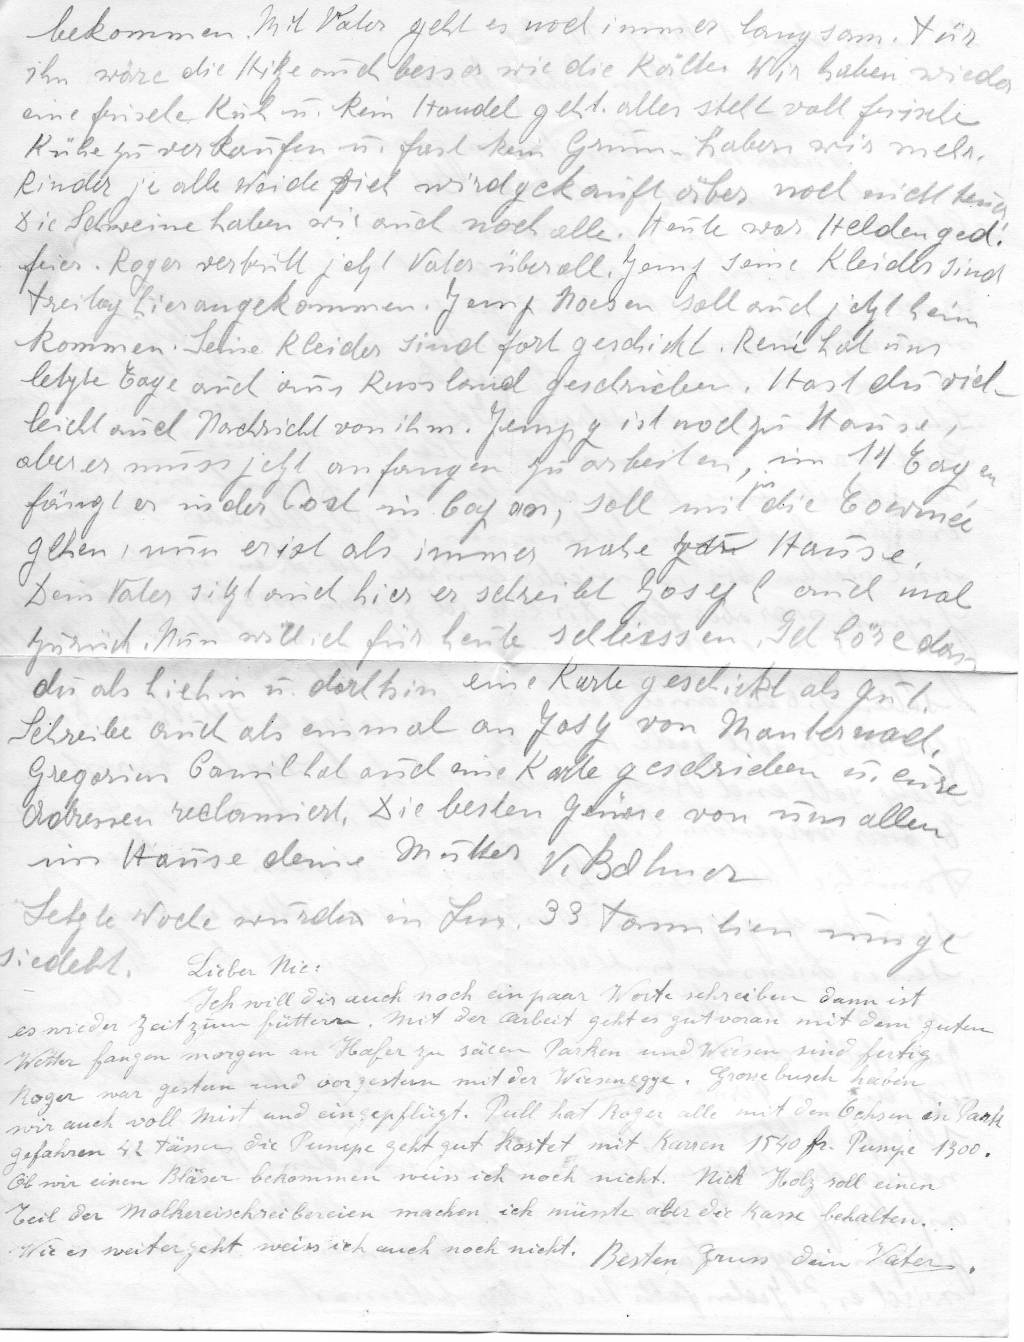 bekommen. Mit Vater geht es noch immer langsam. Für
ihn wäre die Hitze auch besser wie die Kälte. Wir haben wieder
eine frische Kuh u. kein Handel geht. alles steht voll frische
Kühe zu verkaufen u. fast kein haben wir mehr.
Rinder je alle Weide Vieh wird gekauft aber noch nicht teuer
Die Schweine haben wir auch noch alle. Heute war Heldenged.
feier. Roger vertritt jetzt Vater überall. Jemp seine Kleider sind
Freitag hier angekommen. Jemp Noesen soll auch jetzt heim
kommen. Seine Kleider sind fort geschickt. René hat uns
letzte Tage auch aus Russland geschrieben. Hast du viel-
leicht auch Nachricht von ihm. Jempy ist noch zu Hause,
aber er muss jetzt anfangen zu arbeiten, im 14 Tagen
fängt er in der Post in an, soll mit in die Tournée
gehen, nun er ist als immer nahe zu Hause.
Dein Vater sitzt auch hier er schreibt Joseph auch mal
zurück. Nun will ich für heute schliesssen. Ich höre dass
du als hiehin u. dorthin eine Karte geschickt als gut.
Schreibe auch als einmal an Josy von Manternach.
Gregorius Camil hat auch eine Karte geschrieben u. eure
Adressen reclamiert. Die besten Grüsse von uns allen
im Hause deine Mutter V. Bohmer
Letzte Woche wurden in Lux. 33 Familien umge
siedelt.
Lieber Nic:
Ich will dir auch noch ein paar Worte schreiben dann ist
es wieder Zeit zum füttern. Mit der Arbeit geht es gut voran mit dem guten
Wetter fangen morgen an Hafer zu säen Parken und Wiesen sind fertig
Roger war gestern und vorgestern mit der Wiesenegge. Grossebusch haben
wir auch voll Mist und eingepflügt. Pull hat Roger alle mit den Ochsen in Park
gefahren 42 Fässer die Pumpe geht gut kostet mit Karren 1540 fr. Pumpe 1300.
Ob wir einen Bläser bekommen weiss ich noch nicht. Nick Holz soll einen
Teil der Molkereischreibereien machen ich müsste aber die Kasse behalten.
Wie es weiter geht weiss ich auch noch nicht. Besten Gruss dein Vater.